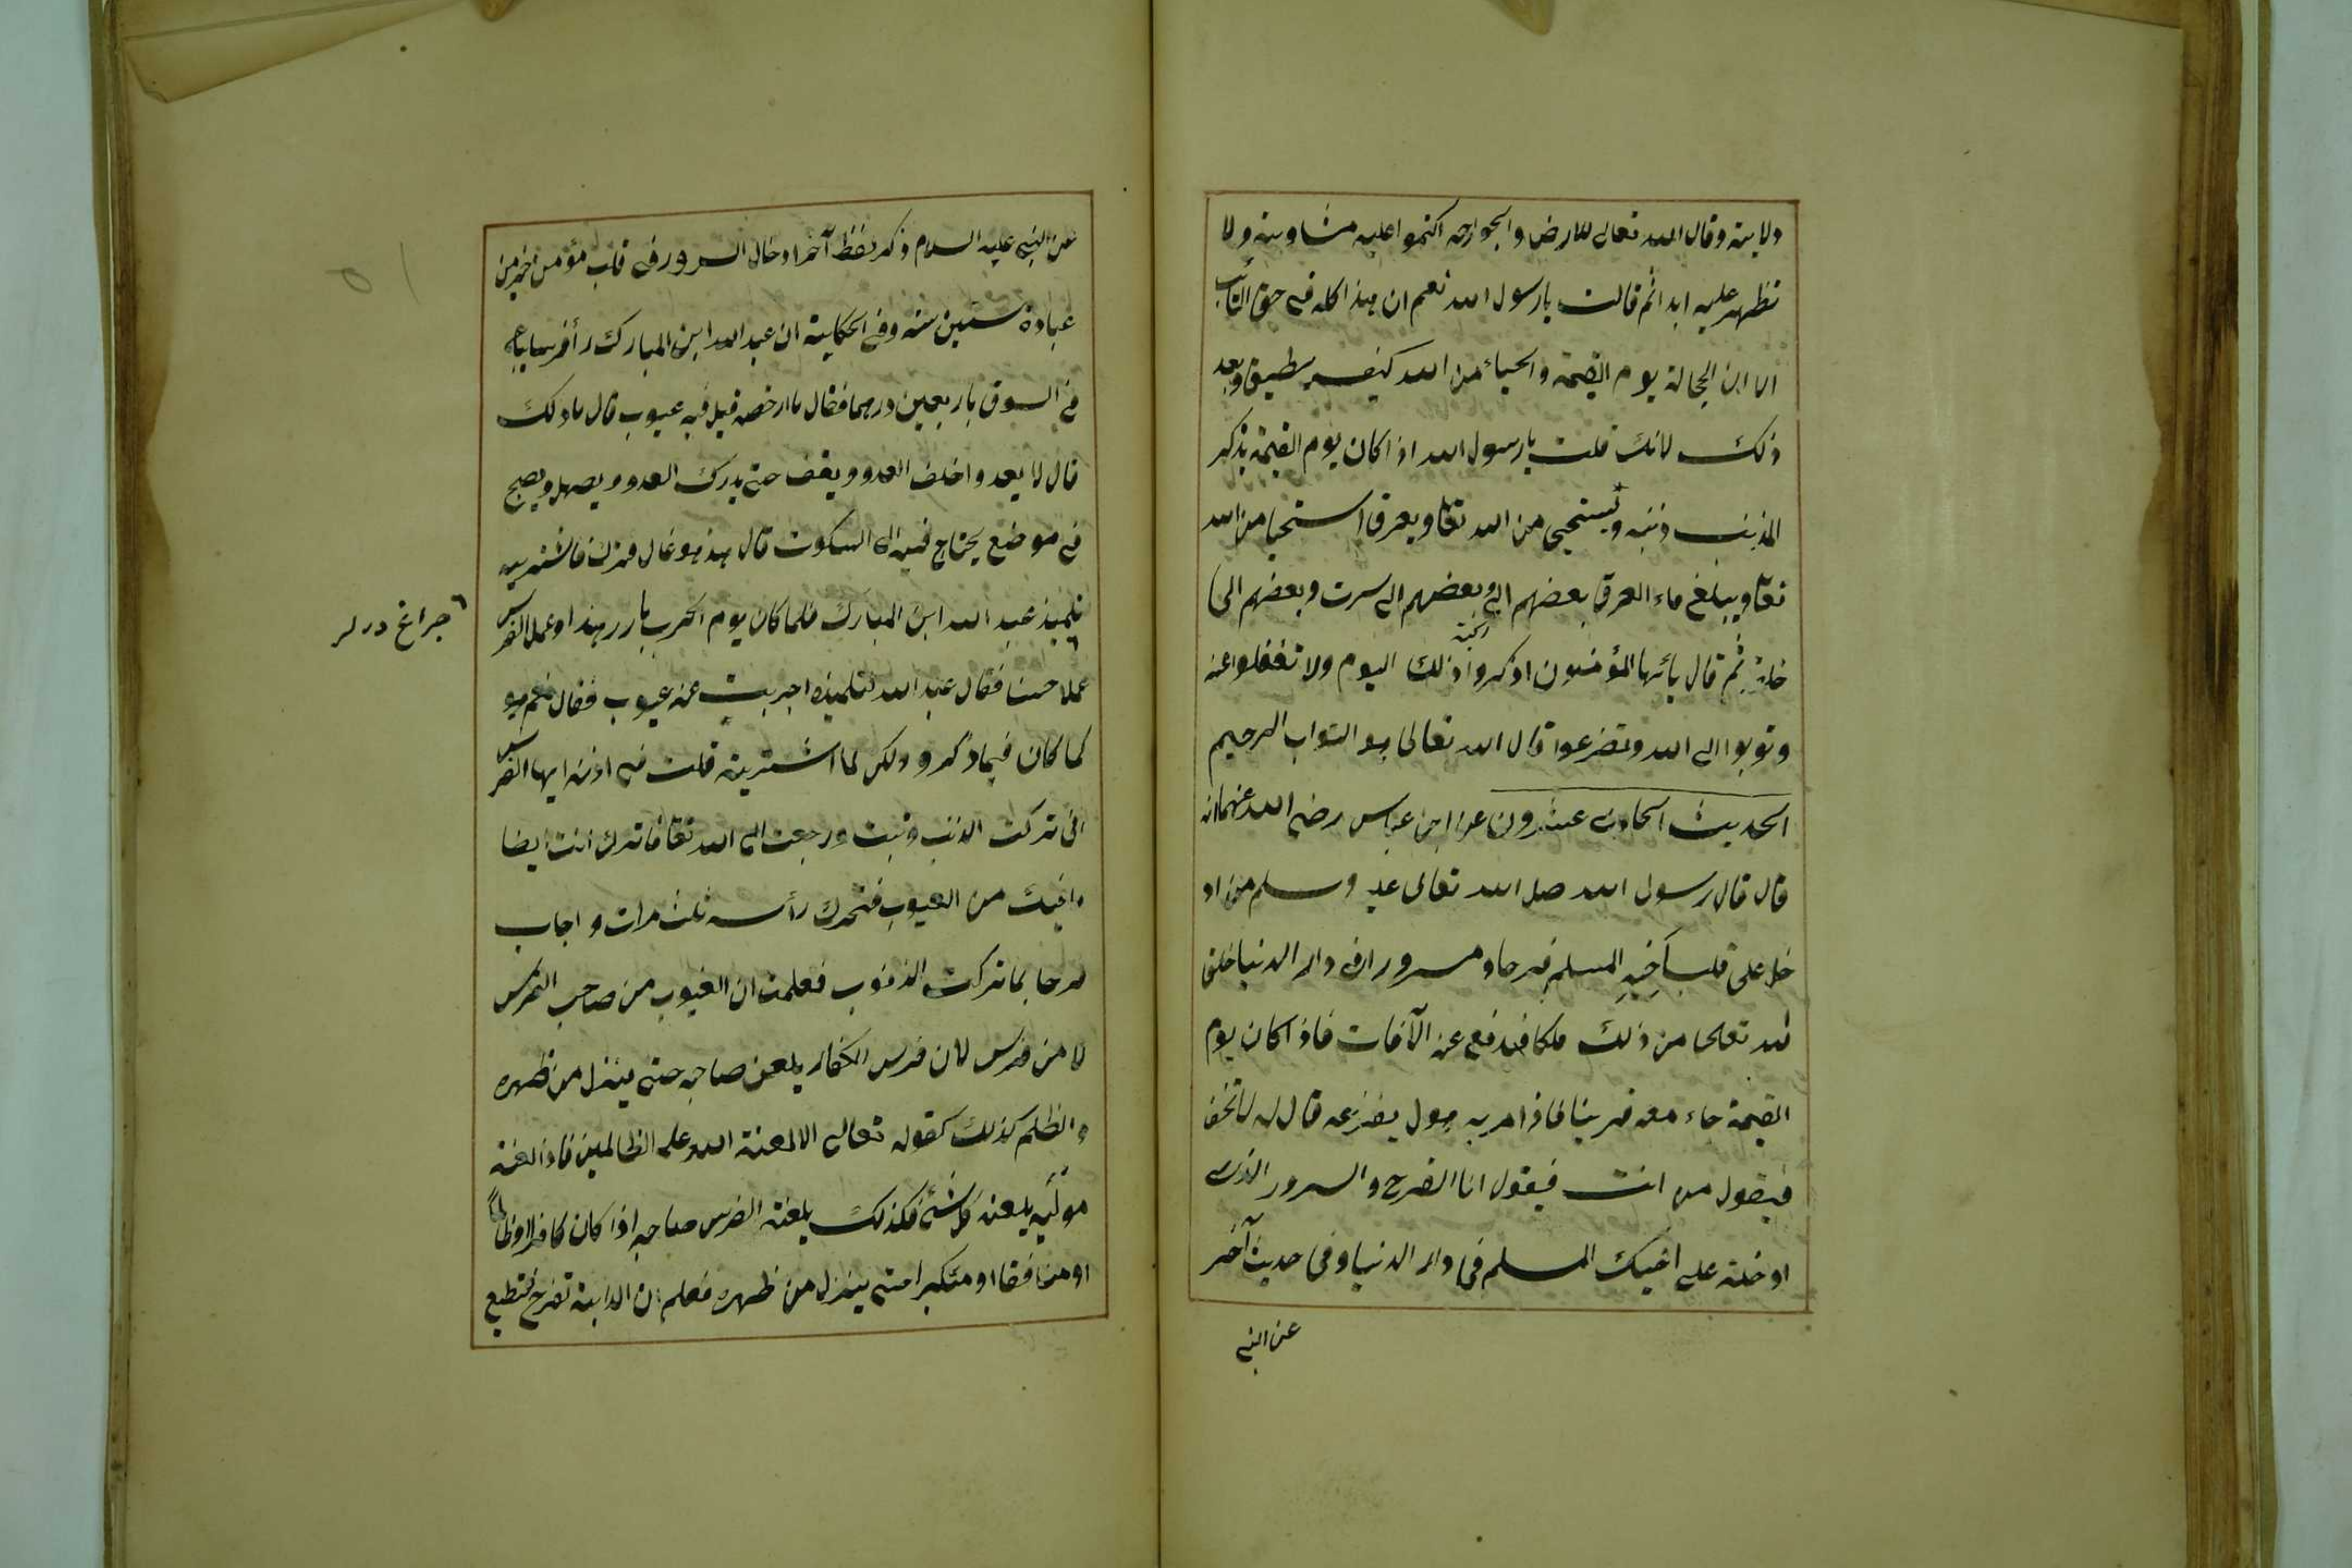 ولايته وقال الله تعالى للارض والجوارحه اكتموا عليه مساويه ولا
تظهر عليه ابدا ثم قالت يا رسول الله نعم ان هذا كله فى حق التائب
اما ابن الخجالة يوم القيمة والحياء من الله كيف يطيق وبعد
ذلك لانك قلت يا رسول الله اذا كان يوم القيمة يذكر
المذنب ذنبه ويستحيى من الله تعا ويعرق استحيا من الله
تعا ويبلغ ماء العرق بعضهم الى وبعضهم الى سرت وبعضهم الى
ثم قال يائها المؤمنون اذكروا ذلك اليوم ولا تغفلوا عنه
وتوبوا الى الله وتضرعوا قال الله تعالى هو التواب الرحيم
الحديث الحادى عشرون عن ابن عباس رضى الله عنهما انه
قال قال رسول الله صلى الله تعالى عليه وسلم من اد
خل على قلب اَخِيهِ المسلم فرحا ومسرورا فى دار الدنيا خلق
الله تعلى من ذلك ملكا فيدفع عنه الآفات فاذا كان يوم
القيمة جاء معه قرينا فاذا مر به هول يفزعه قال له لا تخف
فيقول من انت فيقول انا الفرح والسرور الذى
ادخلته على اخيك المسلم فى دار الدنيا وفى حديث آخر
عن النبى
عن النبى عليه السلام ذكر بلفظ آخر ادخال السرور فى قلب مؤمن خير من
عبادة ستين سنة وفى الحكاية ان عبد الله ابن المبارك رأ فرسا يباع
فى السوق باربعين درهما فقال ما ارخصه قيل فيه عيوب قال ما ذلك
قال لا يعدوا خلف العدو ويقف حتى يدرك العدو ويصهل ويصيح
فى موضع يحتاج فيه الى السكوت قال هذ هو غال فترك فاشتريه
تلميذ عبد الله ابن المبارك فلما كان يوم الحرب بارز هذا وعمل الفرس
عملا حسنا فقال عبد الله لتلميذه اجربت عنه عيوب فقال نعم هو
كما كان فيما ذكرو ولكن لما اشتريته قلت فى اذنه ايها الفرس
انى تركت الذنب وتبت ورجعت الى الله تعا فاترك انت ايضا
ما فيك من العيوب فتحرك رأسه ثلث مرات واجاب
فرحا بما تركت الذنوب فعلمت ان العيوب من صاحب الفرس
لا من فرس لان فرس الكفار يلعن صاحبه حتى ينزل من ظهره
والظلم كذلك كقوله تعالى الا لعنة الله على الظالمين فاذا لعنه
موليه يلعنه كل شئ فكذلك يلعنه الفرس صاحبه اذا كان كافرا او ظالما
او منافقا او متكبرا حتى ينزل من ظهره فعلم ان الدابة تفرح فتطيع
جراغ درلر